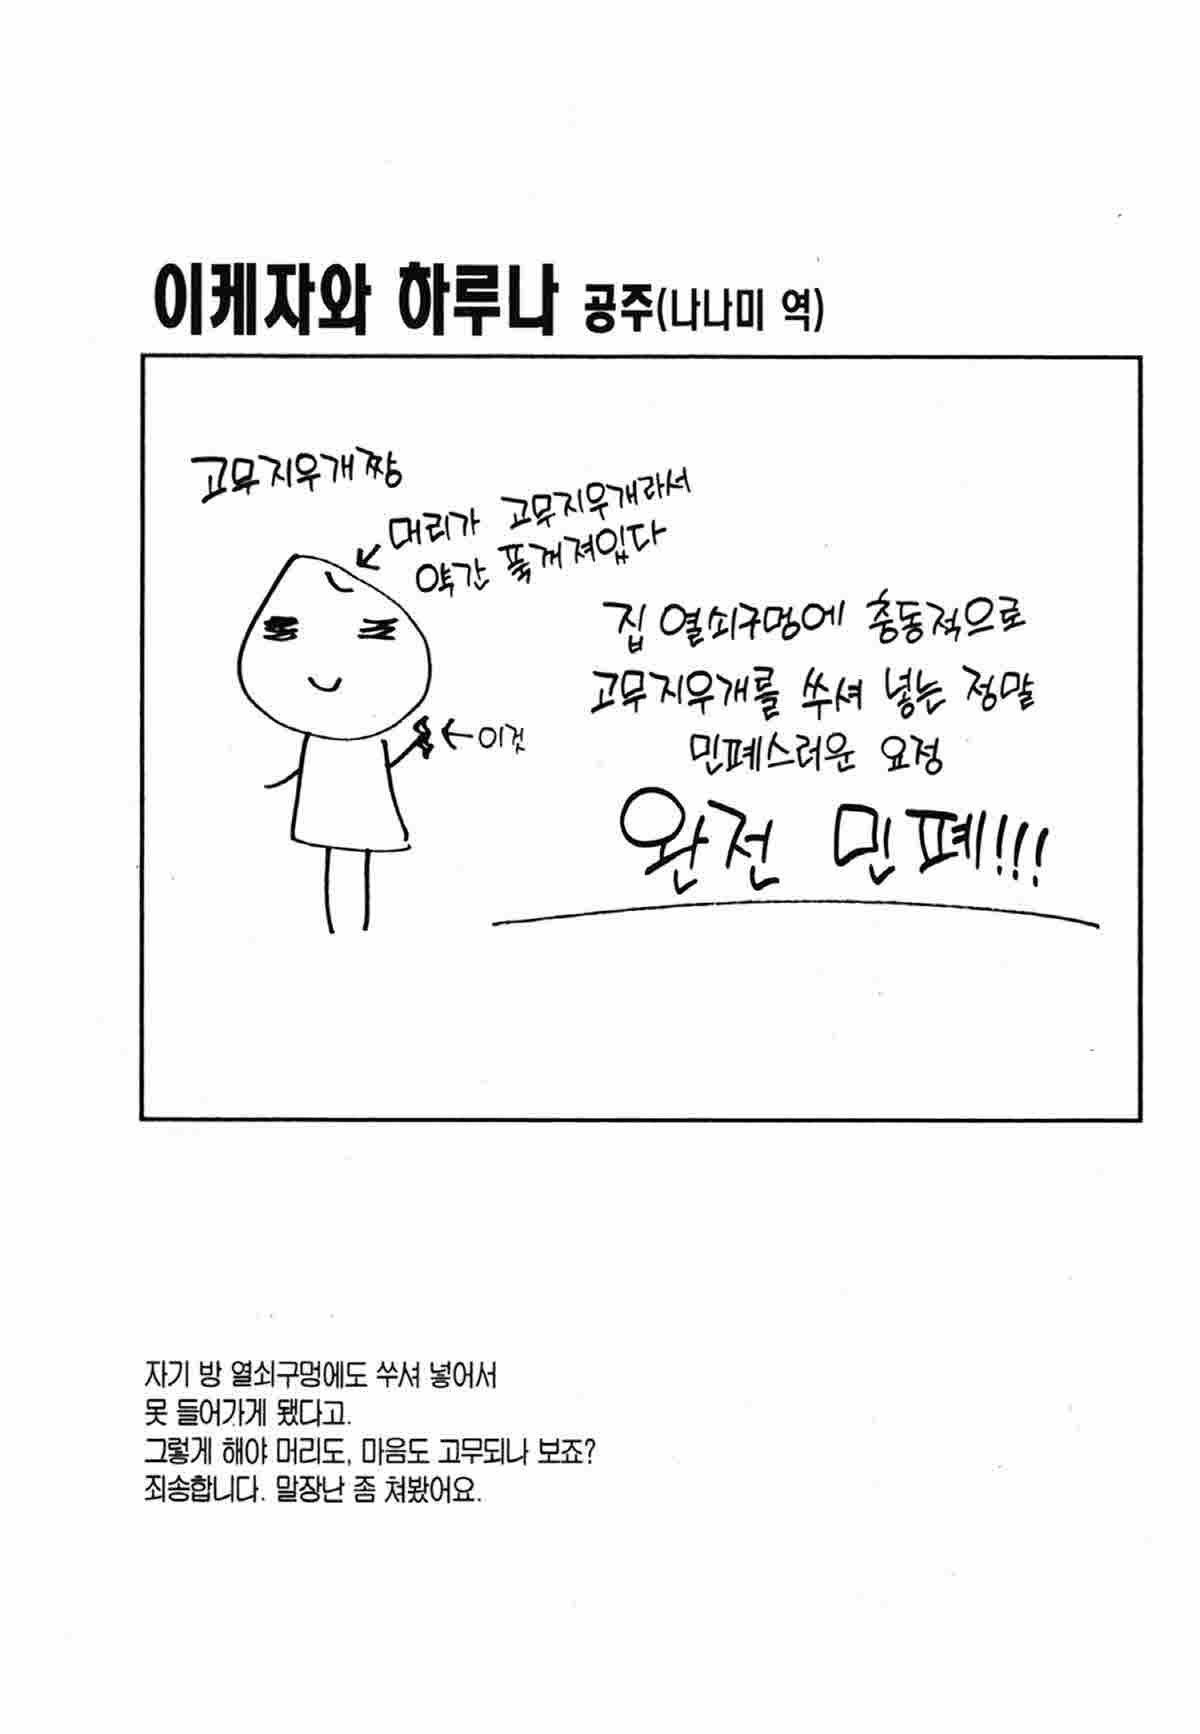 이케자와 하루나 공주(나나미 역)
고무지우개쨩
머리가 고무지우개라서
약간 푹 꺼져있다
집 열쇠구멍에 충동적으로
고무지우개를 쑤셔 넣는 정말
민폐스러운 요정
이것
완전 민폐!!!
자기 방 열쇠구멍에도 쑤셔 넣어서
못 들어가게 됐다고.
그렇게 해야 머리도, 마음도 고무되나 보죠?
죄송합니다. 말장난 좀 쳐봤어요.